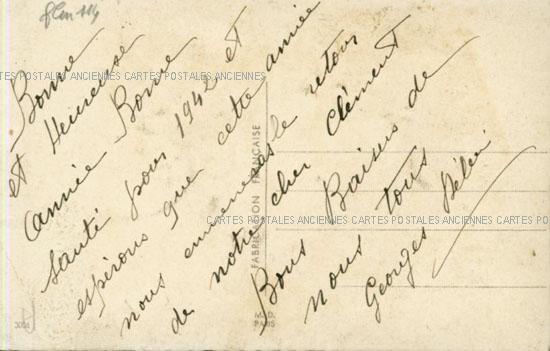 Bonne
et Heureuse
année Bonne
santé pour 1942 et
espérons que cette année
nous emmenera le retour
de notre cher Clément
Bons Baisers de
nous tous
Georges
FABRICATION FRANÇAISE
PARIS
CARTES POSTALES ANCIENNES CARTES POSTALES ANCIENNES CARTES POSTALES ANCIENNES
CARTES POSTALES ANCIENNES CARTES POSTALES ANCIENNES CARTES POSTALES